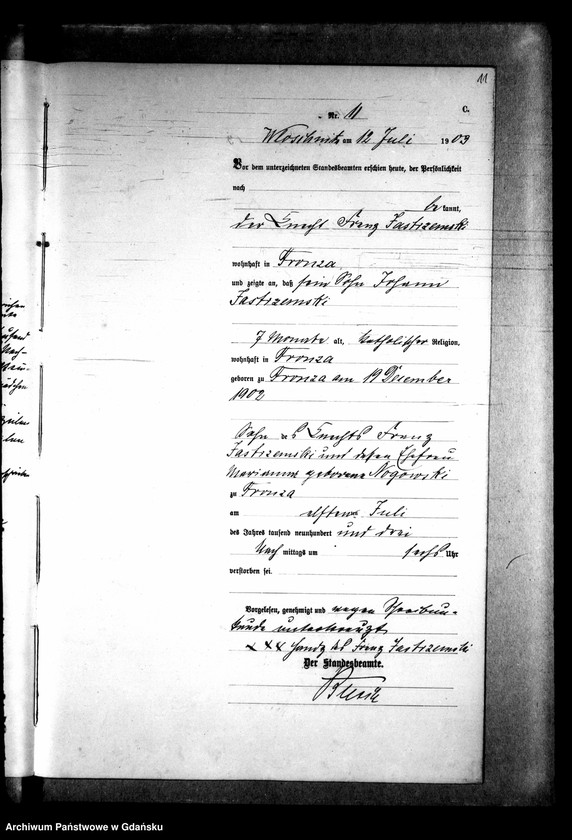 11
C.
Nr. 11
am 12 Juli 1903
Vor dem unterzeichneten Standesbeamten erschien heute, der Persönlichkeit
nach
be kannt,
der Knecht Franz Jastrzemski
wohnhaft in Fronza
und zeigte an, daß sein Sohn Johann
Jastrzemski
7 Monate alt, katholischer Religion,
wohnhaft in Fronza
geboren zu Fronza am 19 Dezember
1902
Sohn des Knechts Franz
Jastrzemski und dessen Ehefrau
Marianna geborene Nogowski
zu Fronza
am elften Juli
des Jahres tausend neunhundert und drei
Nach mittags um sechs Uhr
verstorben sei.
Vorgelesen, genehmigt und wegen Schreibun-
kunde unterkreuzt
x x x Handz des Franz Jastrzemski
Der Standesbeamte.
Archiwum Państwowe w Gdańsku